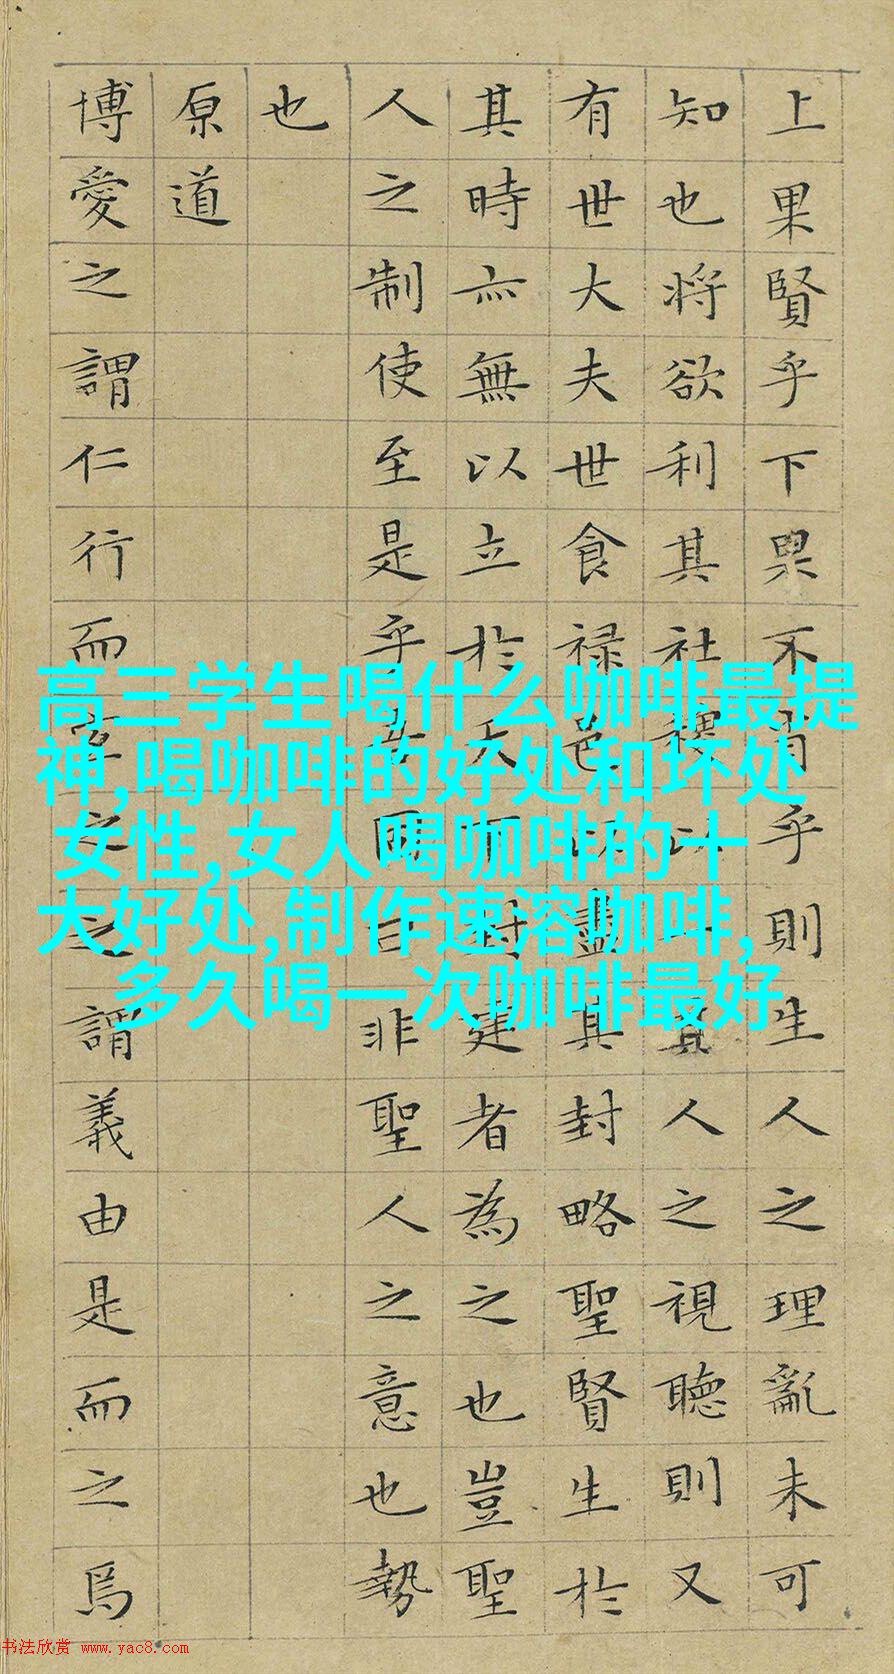 上果賢乎下果不肖乎則生人之理亂未可
知也将欲利其社稷以一其人之視聽則又
有世大夫世食禄邑以盡其封略聖賢生於
其時亦無以立於天下封建者為之也豈聖
人之制使至是乎吾固曰非聖人之意也勢
也
原道
博愛之謂仁行而宜之之謂義由是而之焉
高三学生喝什么咖啡最提
神,喝咖啡的好处和坏处
女性,女人喝咖啡的十
大好处,制作速溶咖啡,
多久喝一次咖啡最好
书法欣赏 www.yac8.com